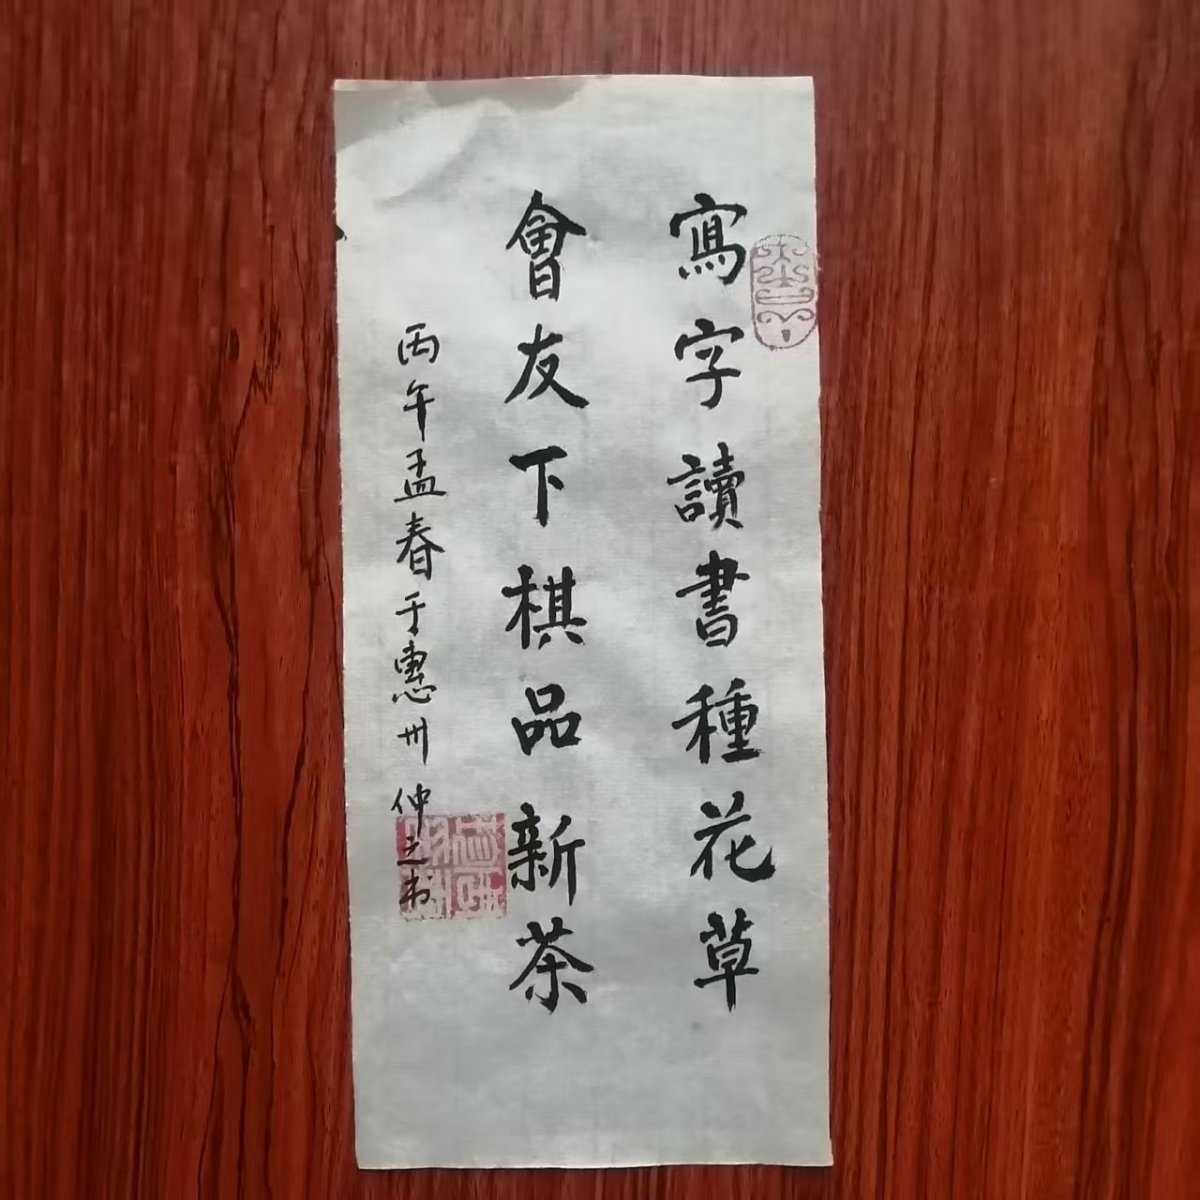 寫字讀書種花草
會友下棋品新茶
丙午孟春于惠州仲之书